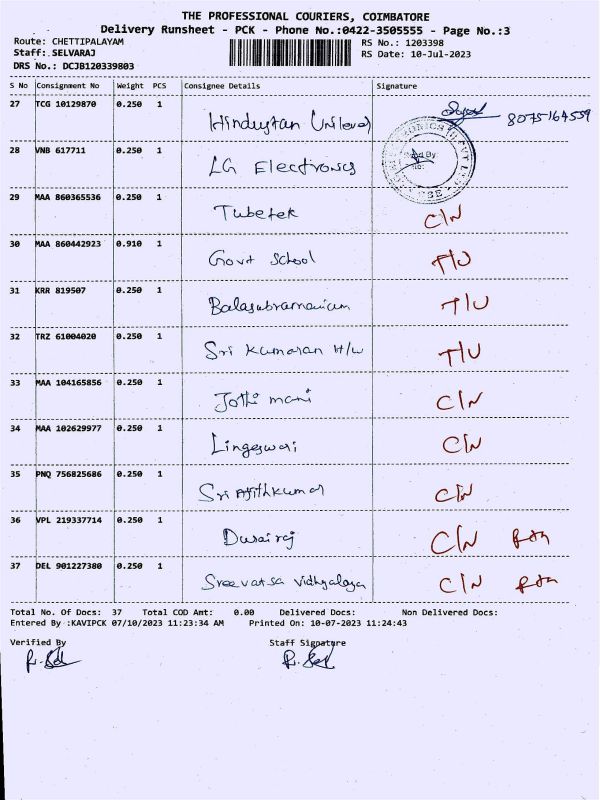 THE PROFESSIONAL COURIERS, COIMBATORE
Delivery Runsheet - PCK - Phone No.:0422-3505555 - Page No.:3
Route: CHETTIPALAYAM RS No.: 1203398
Staff: SELVARAJ RS Date: 10-Jul-2023
DRS No.: DCJB120339803
S No Consignment No Weight PCS Consignee Details Signature
27 TCG 10129870 0.250 1 Hindustan Unilever 8075164559
28 VNB 617711 0.250 1 LG Electronics
29 MAA 860365536 0.250 1 Tubetek C/N
30 MAA 860442923 0.910 1 Govt School T/U
31 KRR 819507 0.250 1 Balasubramanium T/U
32 TRZ 61004020 0.250 1 Sri Kumaran H/W T/U
33 MAA 104165856 0.250 1 Jothi mani C/N
34 MAA 102629977 0.250 1 Lingeswari C/N
35 PNQ 756825686 0.250 1 Sri Ajithkumar C/N
36 VPL 219337714 0.250 1 Durairaj C/N
37 DEL 901227380 0.250 1 Sreevatsa Vidhyalaya C/N
Total No. Of Docs: 37 Total COD Amt: 0.00 Delivered Docs: Non Delivered Docs:
Entered By :KAVIPCK 07/10/2023 11:23:34 AM Printed On: 10-07-2023 11:24:43
Verified By Staff Signature